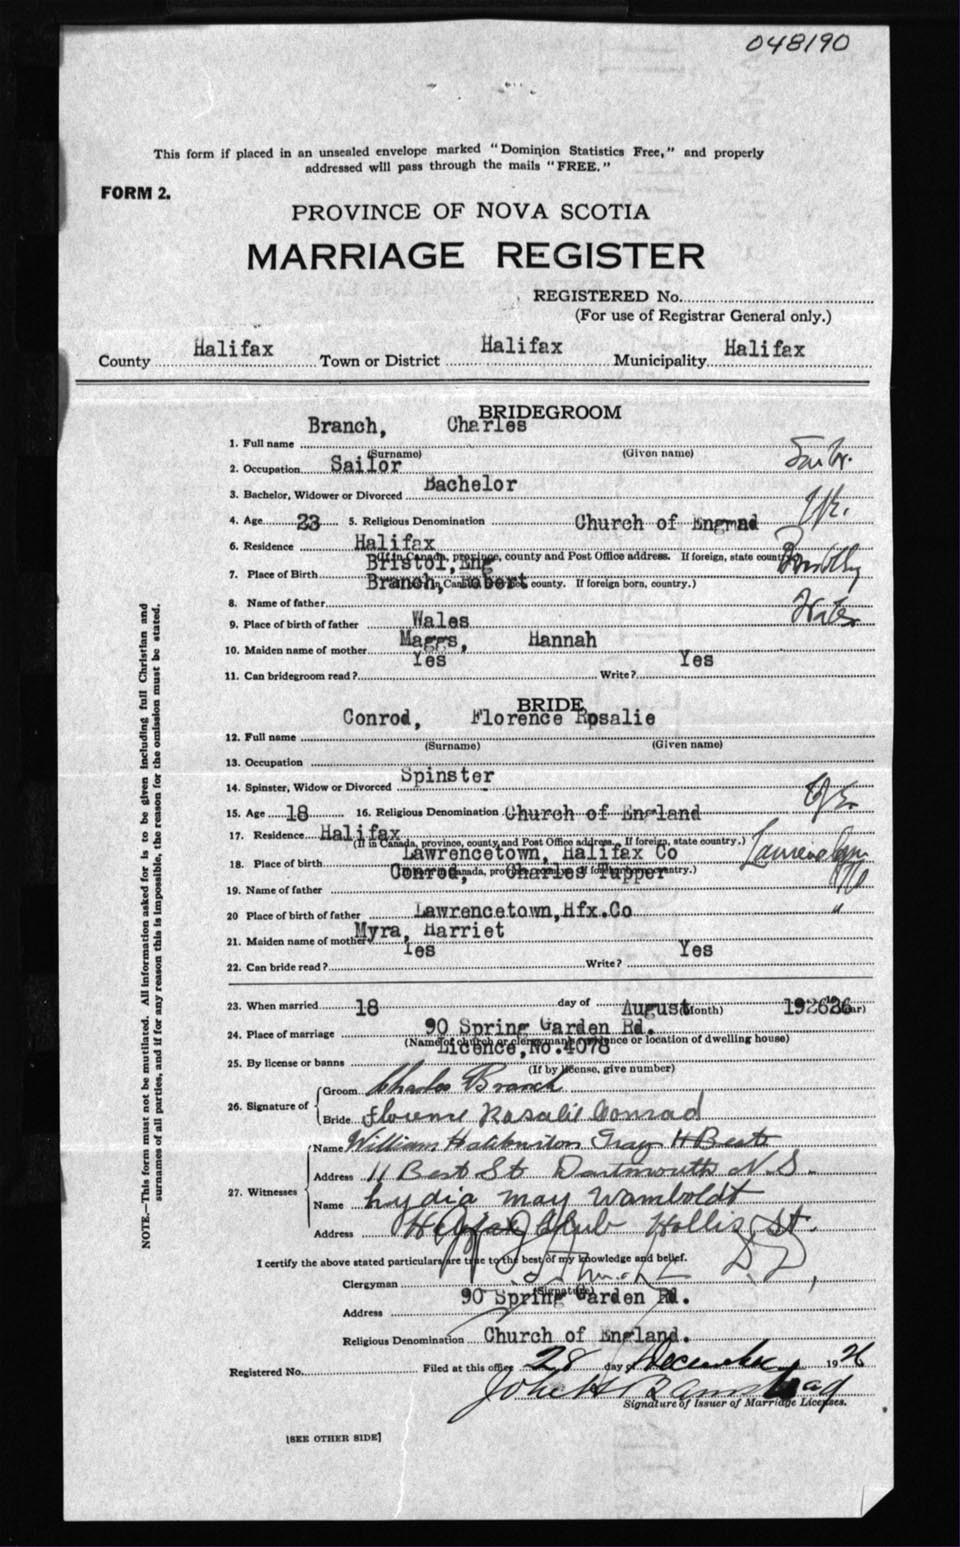 048190
This form if placed in an unsealed envelope marked "Dominion Statistics Free," and properly
addressed will pass through the mails "FREE."
FORM 2.
PROVINCE OF NOVA SCOTIA
MARRIAGE REGISTER
REGISTERED No.
(For use of Registrar General only.)
County Halifax Town or District Halifax Municipality Halifax
BRIDEGROOM
1. Full name Branch, Charles
(Surname) (Given name)
2. Occupation Sailor
3. Bachelor, Widower or Divorced Bachelor
4. Age 23 5. Religious Denomination Church of Engmad
6. Residence Halifax
(If in Canada, province, county and Post Office address. If foreign, state country.)
7. Place of Birth Bristol, Eng
county. If foreign born, country.)
8. Name of father Branch, Robert
9. Place of birth of father Wales
10. Maiden name of mother Maggs, Hannah
11. Can bridegroom read? Yes Write? Yes
BRIDE
12. Full name Conrod, Florence Rosalie
(Surname) (Given name)
13. Occupation
14. Spinster, Widow or Divorced Spinster
15. Age 18 16. Religious Denomination Church of England
17. Residence Halifax
(If in Canada, province, county and Post Office address. If foreign, state country.)
18. Place of birth Lawrencetown, Halifax Co
19. Name of father Conrod, Charles Tupper
20 Place of birth of father Lawrencetown, Hfx.Co "
21. Maiden name of mother Myra, Harriet
22. Can bride read? Yes Write? Yes
23. When married 18 day of August (Month) 1926
24. Place of marriage 90 Spring Garden Rd.
(Name of church or clergyman's residence or location of dwelling house)
25. By license or banns Licence, No. 4078
(If by license, give number)
26. Signature of Groom Charles Branch
Bride Florence Rosalie Conrad
27. Witnesses
Name William
Address 11 Best St Dartmouth N.S.
Name Lydia May Wamboldt
Address Halifax Club Hollis St.
I certify the above stated particulars are true to the best of my knowledge and belief.
Clergyman
(Signature)
Address 90 Spring Garden Rd.
Religious Denomination Church of England.
Registered No. Filed at this office 28 day of December 1926
Signature of Issuer of Marriage Licenses.
[SEE OTHER SIDE]
NOTE.—This form must not be mutilated. All information asked for is to be given including full Christian and
surnames of all parties, and if for any reason this is impossible, the reason for the omission must be stated.